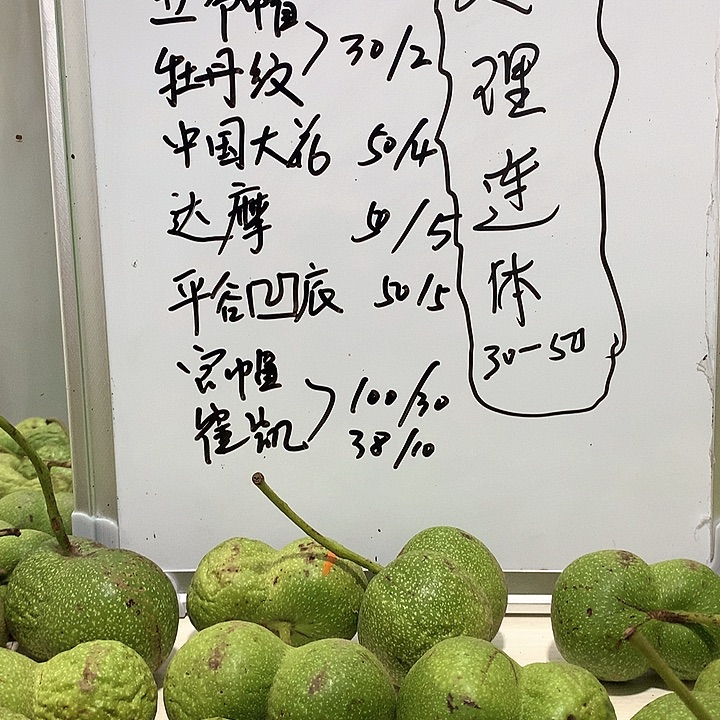 牡丹纹
30/2
中国大花 50/4
达摩 50/5
平谷凹底 50/5
官帽 100/30
崔凯 38/10
理
连
体
30-50